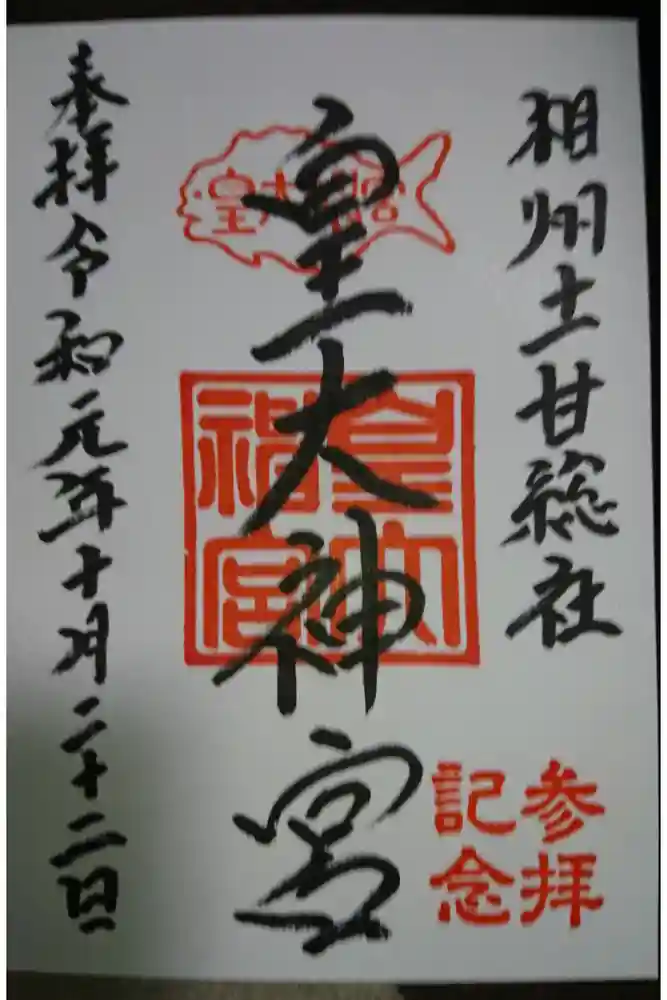 相州土甘総社
皇大神宮
奉拝令和元年十月二十二日
皇大神宮
皇大神宮
参拝
記念